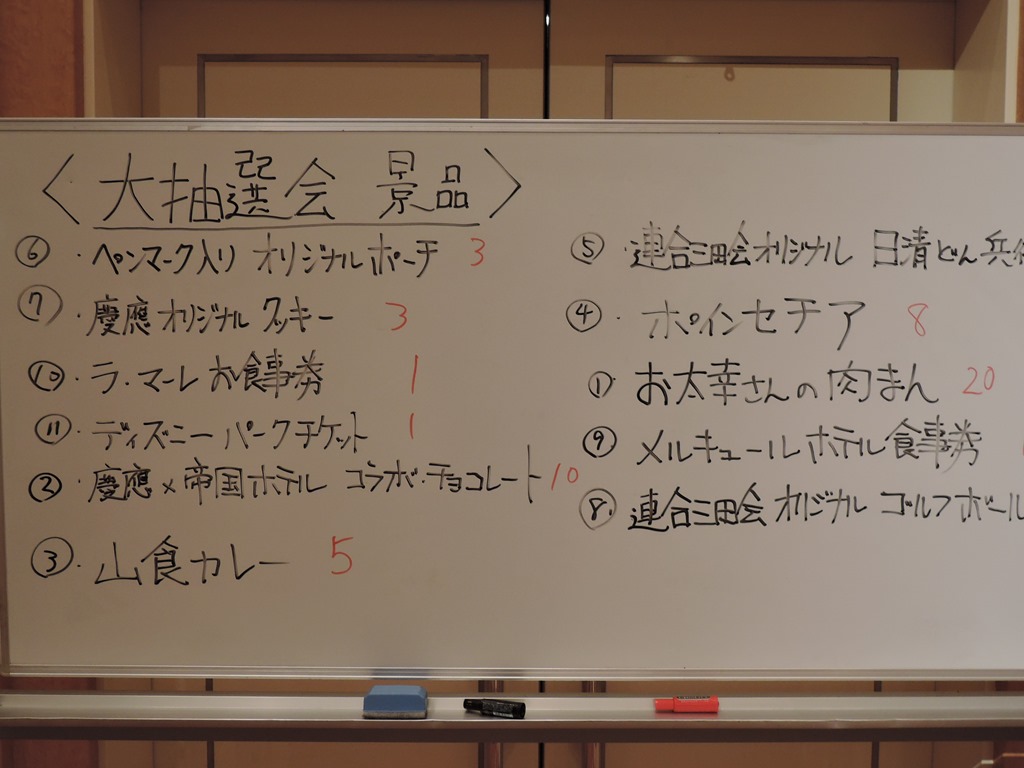 〈大抽選会 景品〉
⑥・ペンマーク入り オリジナルポーチ 3
⑦・慶應オリジナル クッキー 3
⑩・ラ・マーレ お食事券 1
⑪・ディズニーパークチケット 1
②・慶應×帝国ホテル コラボ・チョコレート 10
③・山食カレー 5
⑤・連合三田会オリジナル 日清どん兵衛
④・ポインセチア 8
①・お太幸さんの肉まん 20
⑨・メルキュールホテル食事券
⑧・連合三田会オリジナル ゴルフボール